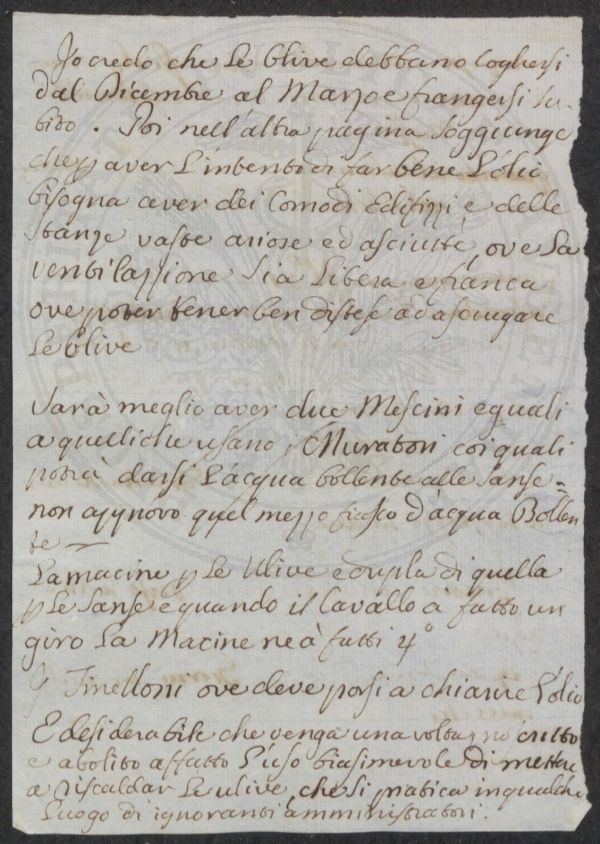 Io credo che le Ulive debbano Cogliersi
dal Dicembre al Marzo e frangersi su-
bito. Poi nell'altra pagina soggiunge
che p aver L'intento di far bene L'olio
bisogna aver dei Comodi Edifizzi e delle
stanze vaste ariose ed asciutte, ove La
ventilazzione sia Libera e franca
ove poter tener ben distese ad asciugare
Le Olive
Sarà meglio aver due Mescini eguali
a quelli che usano i Muratori coi quali
potrà darsi L'acqua bollente alle Sanse -
non approvo quel mezzo fiasco d'acqua Bollen
te —
La macine p Le Ulive e dupla di quella
p Le Sanse e quando il Cavallo à fatto un
giro La Macine ne à fatti 4º
Tinelloni ove deve porsi a chiarire L'olio
E desiderabile che venga una volta
e abolito affatto L'uso biasimevole di mettere
a riscaldar Le ulive, che si pratica in qualche
Luogo di ignoranti amministratori.